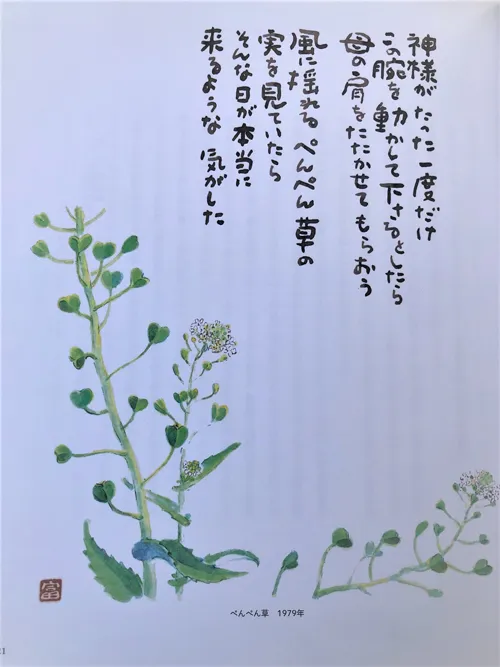 神様がたった一度だけ
この腕を動かして下さるとしたら
母の肩をたたかせてもらおう
風に揺れるぺんぺん草の
実を見ていたら
そんな日が本当に
来るような気がした
富
ぺんぺん草 1979年
21